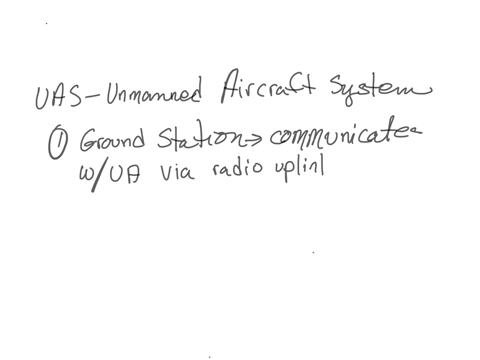 UAS - Unmanned Aircraft System
① Ground Station → communicates
w/UA via radio uplinl